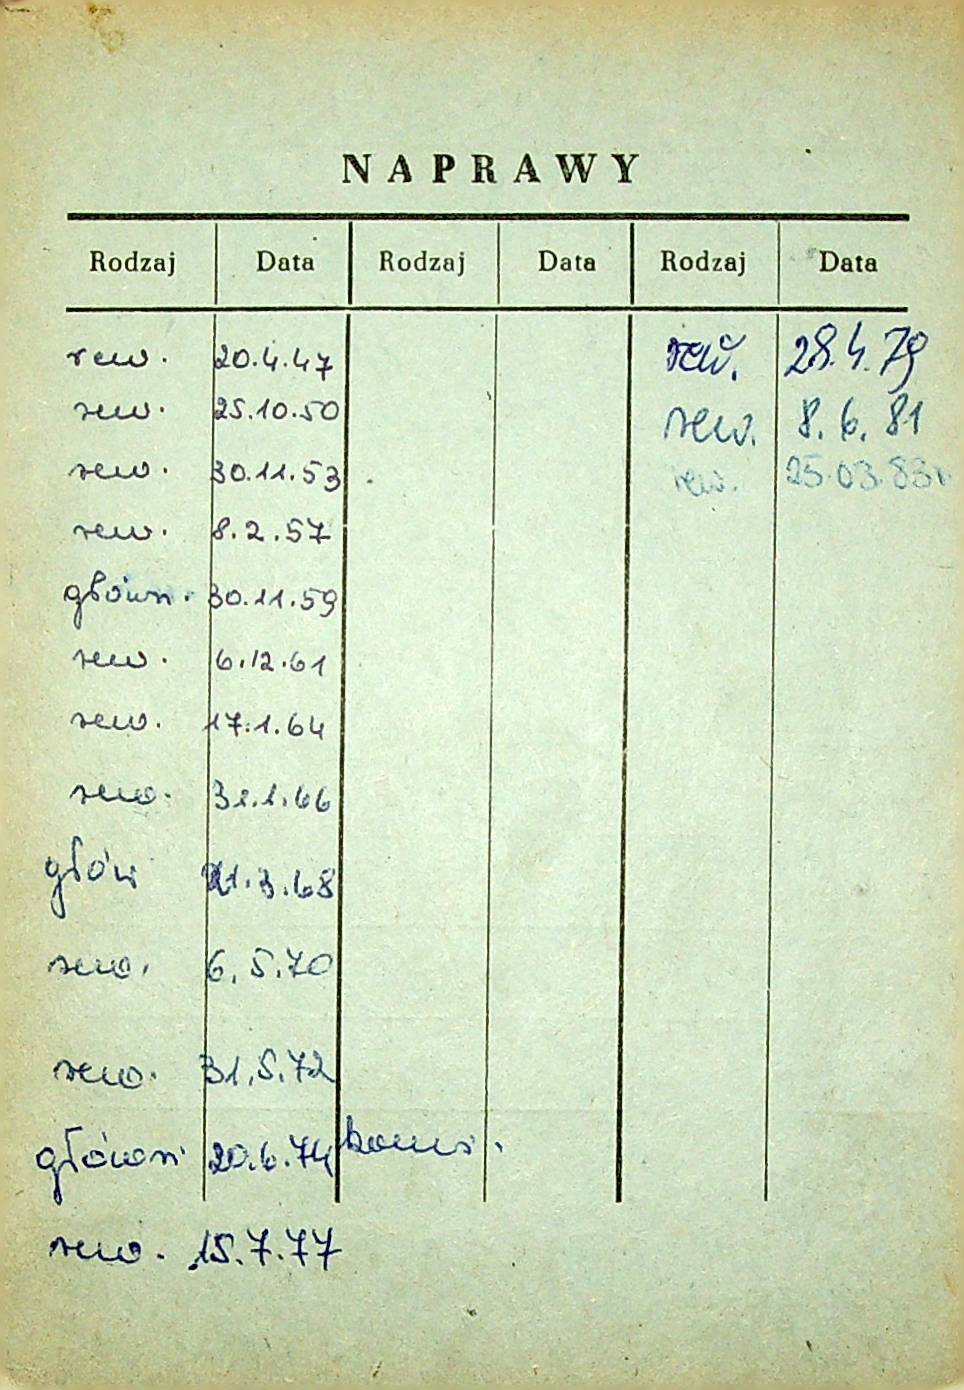 NAPRAWY
Rodzaj Data Rodzaj Data Rodzaj Data
rew. 20.4.47 rew. 28.4.79
rew. 25.10.50 rew. 8.6.81
rew. 30.11.53 rew. 25.03.83r.
rew. 8.2.57
główn. 30.11.59
rew. 6.12.61
rew. 17.1.64
rew. 31.1.66
główn 21.3.68
rew. 6.5.70
rew. 31.5.72
główn 20.6.74
rew. 15.7.77